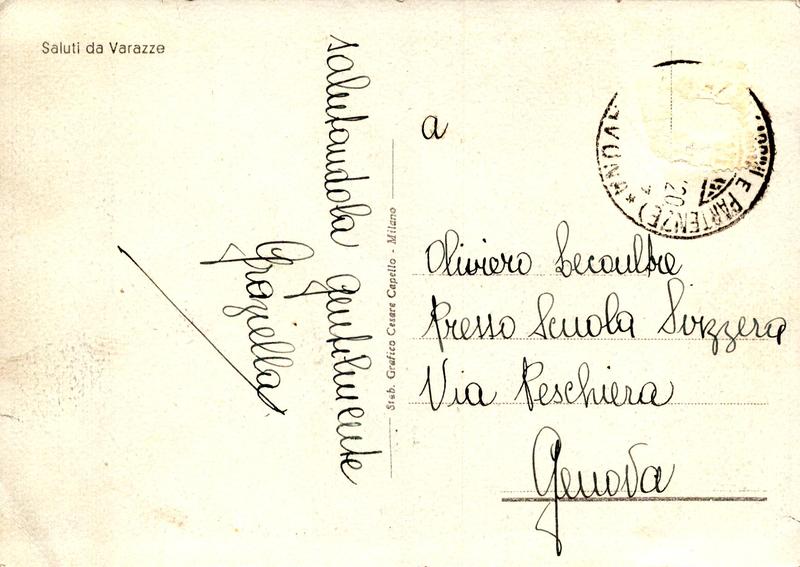 Saluti da Varazze
salutandola gentilmente
Graziella
Stab. Grafico Cesare Capello - Milano
a
E PARTENZE) *
20
Oliviero Lecoultre
Presso Scuola Svizzera
Via Peschiera
Genova